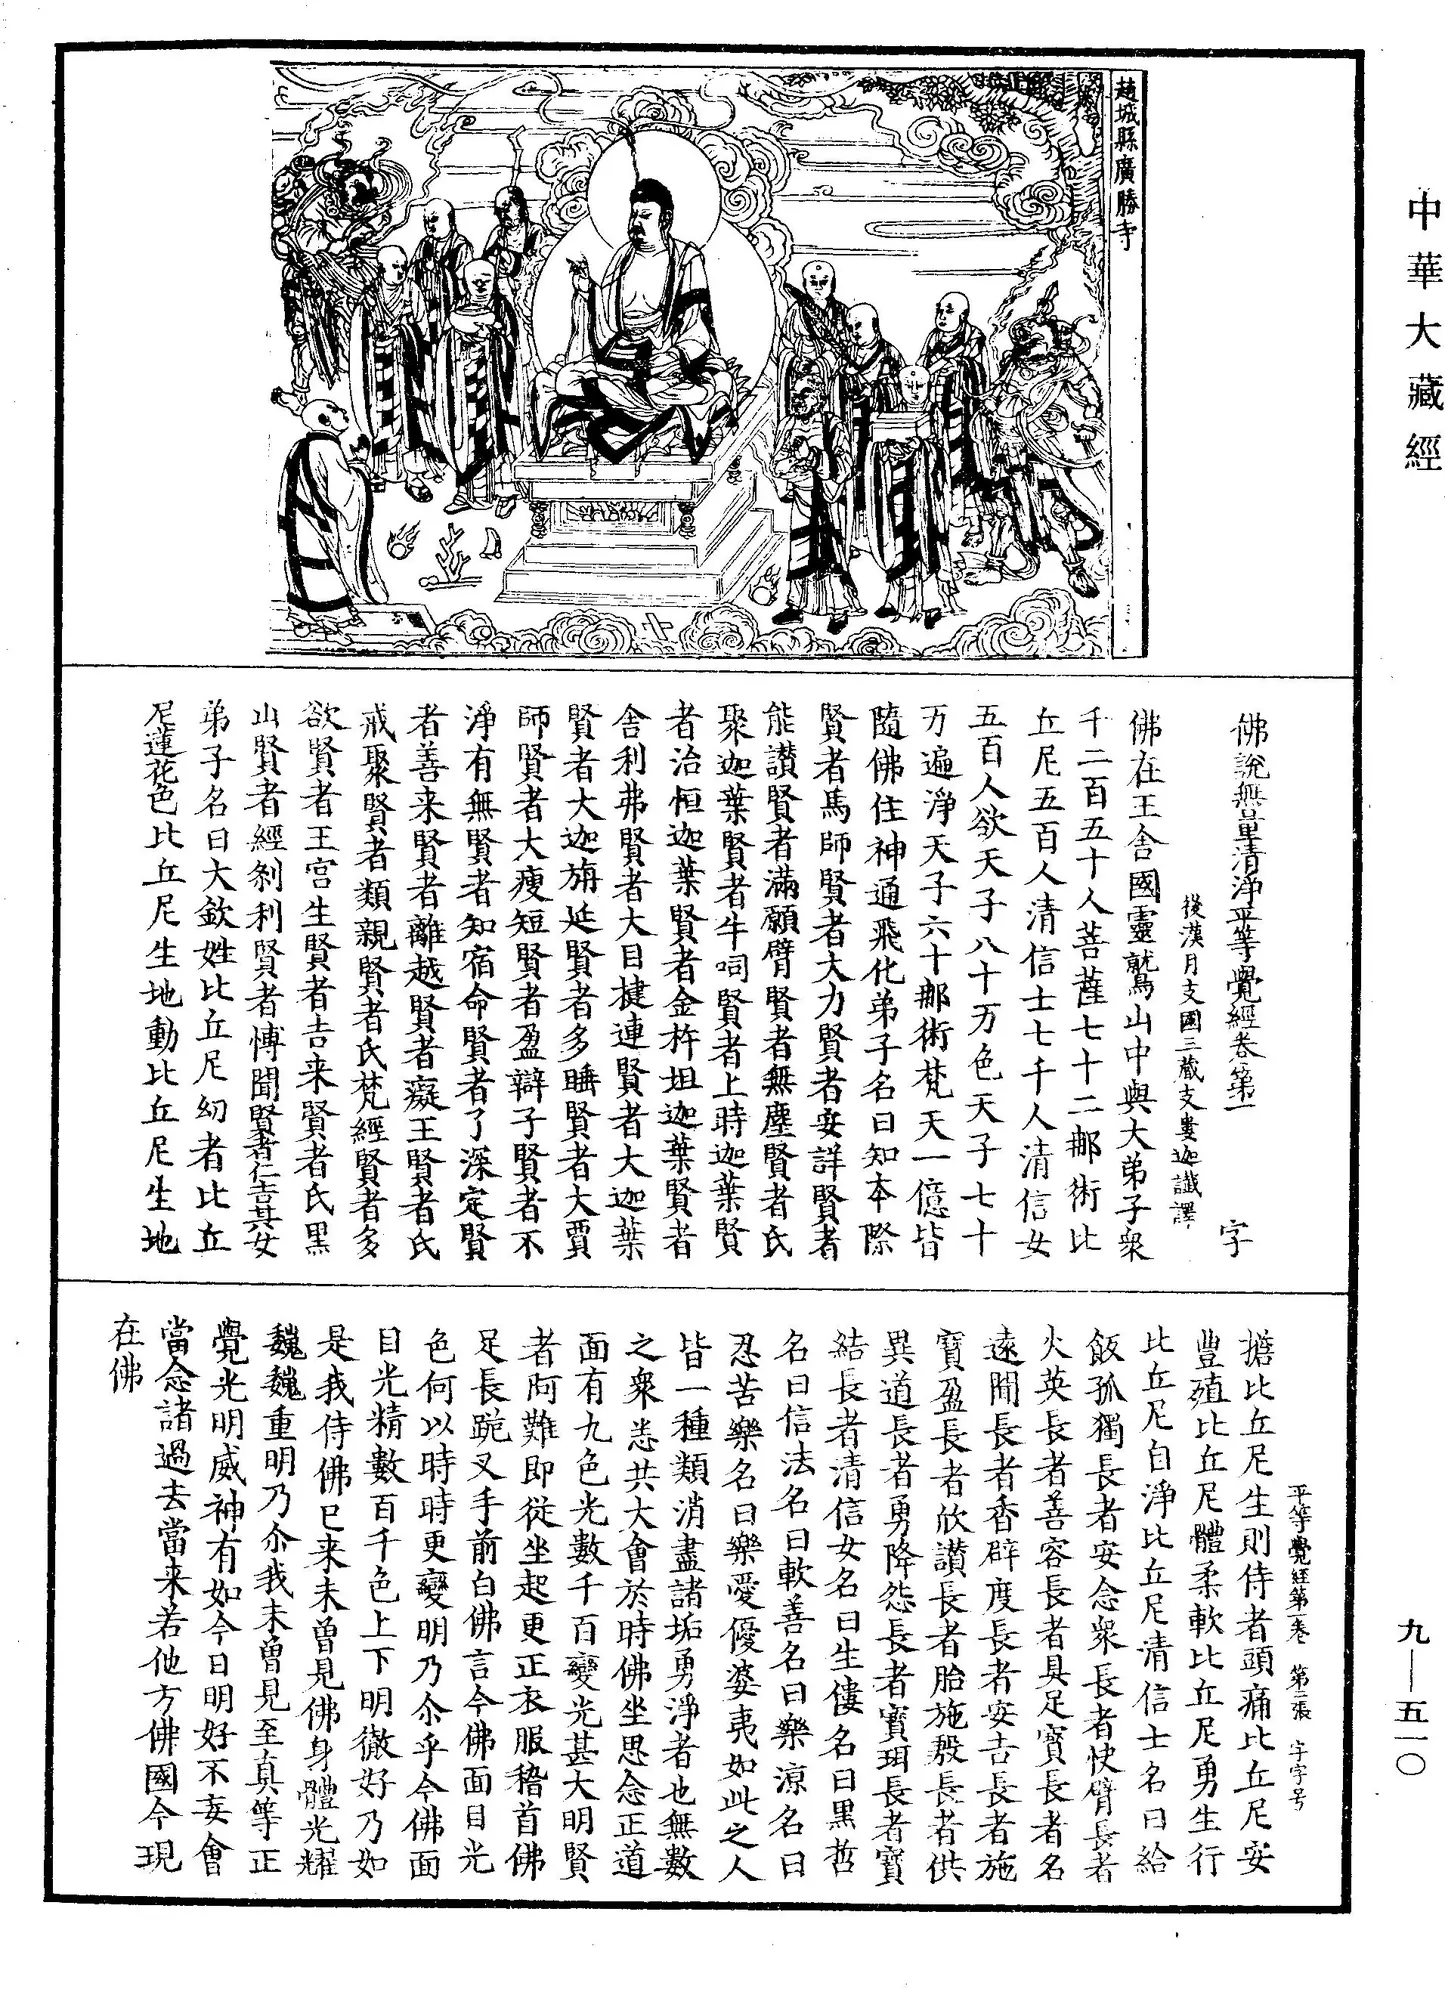 中華大藏經
趙城縣廣勝寺
佛說無量清淨平等覺經卷第一 字
後漢月支國三藏支婁迦讖譯
佛在王舍國靈鷲山中與大弟子衆
千二百五十人菩薩七十二那術比
丘尼五百人清信士七千人清信女
五百人欲天子八十万色天子七十
万遍淨天子六十那術梵天一億皆
隨佛住神通飛化弟子名曰知本際
賢者馬師賢者大力賢者安詳賢者
能讃賢者滿願臂賢者無塵賢者氏
聚迦葉賢者牛呞賢者上時迦葉賢
者治恒迦葉賢者金杵坦迦葉賢者
舍利弗賢者大目揵連賢者大迦葉
賢者大迦旃延賢者多睡賢者大賈
師賢者大瘦短賢者盈辯子賢者不
淨有無賢者知宿命賢者了深定賢
者善来賢者離越賢者癡王賢者氏
戒聚賢者類親賢者氏梵經賢者多
欲賢者王宮生賢者吉来賢者氏黑
山賢者經剎利賢者博聞賢者仁吉其女
弟子名曰大欽姓比丘尼幼者比丘
尼蓮花色比丘尼生地動比丘尼生地
平等覺經第一卷 第二張 字字号
擔比丘尼生則侍者頭痛比丘尼安
豐殖比丘尼體柔軟比丘尼勇生行
比丘尼自淨比丘尼清信士名曰給
飯孤獨長者安念衆長者快臂長者
火英長者善容長者具足寶長者名
遠聞長者香辟度長者安吉長者施
寶盈長者欣讚長者胎施殷長者供
異道長者勇降怨長者寶珥長者寶
結長者清信女名曰生僂名曰黑哲
名曰信法名曰軟善名曰樂涼名曰
忍苦樂名曰樂愛優婆夷如此之人
皆一種類消盡諸垢勇淨者也無數
之衆悉共大會於時佛坐思念正道
面有九色光數千百變光甚大明賢
者阿難即從坐起更正衣服稽首佛
足長跪叉手前白佛言今佛面目光
色何以時時更變明乃尒乎今佛面
目光精數百千色上下明徹好乃如
是我侍佛已来未曾見佛身體光耀
巍巍重明乃尒我未曾見至真等正
覺光明威神有如今日明好不妄會
當念諸過去當来若他方佛國今現
在佛
九—五一〇